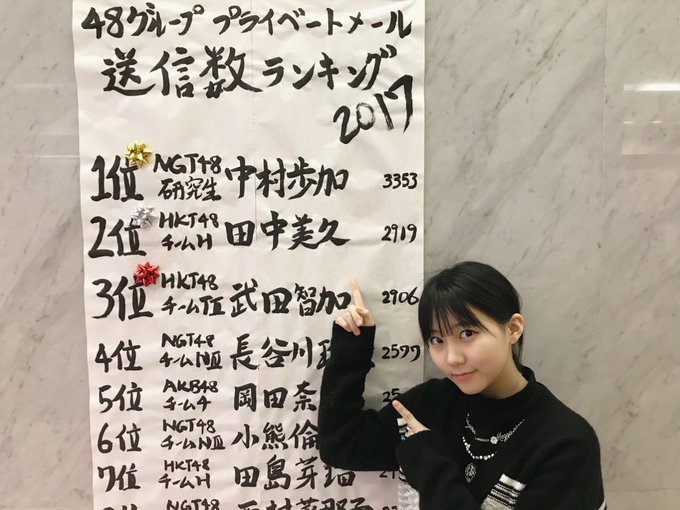 48グループ プライベートメール
送信数ランキング
2017
1位 NGT48 研究生 中村歩加 3353
2位 HKT48 チームH 田中美久 2919
3位 HKT48 チームTⅡ 武田智加 2906
4位 NGT48 チームNⅢ 長谷川 2577
5位 AKB48 チーム4 岡田奈
6位 NGT48 チームNⅢ 小熊倫
7位 HKT48 チームH 田島芽瑠
NGT48